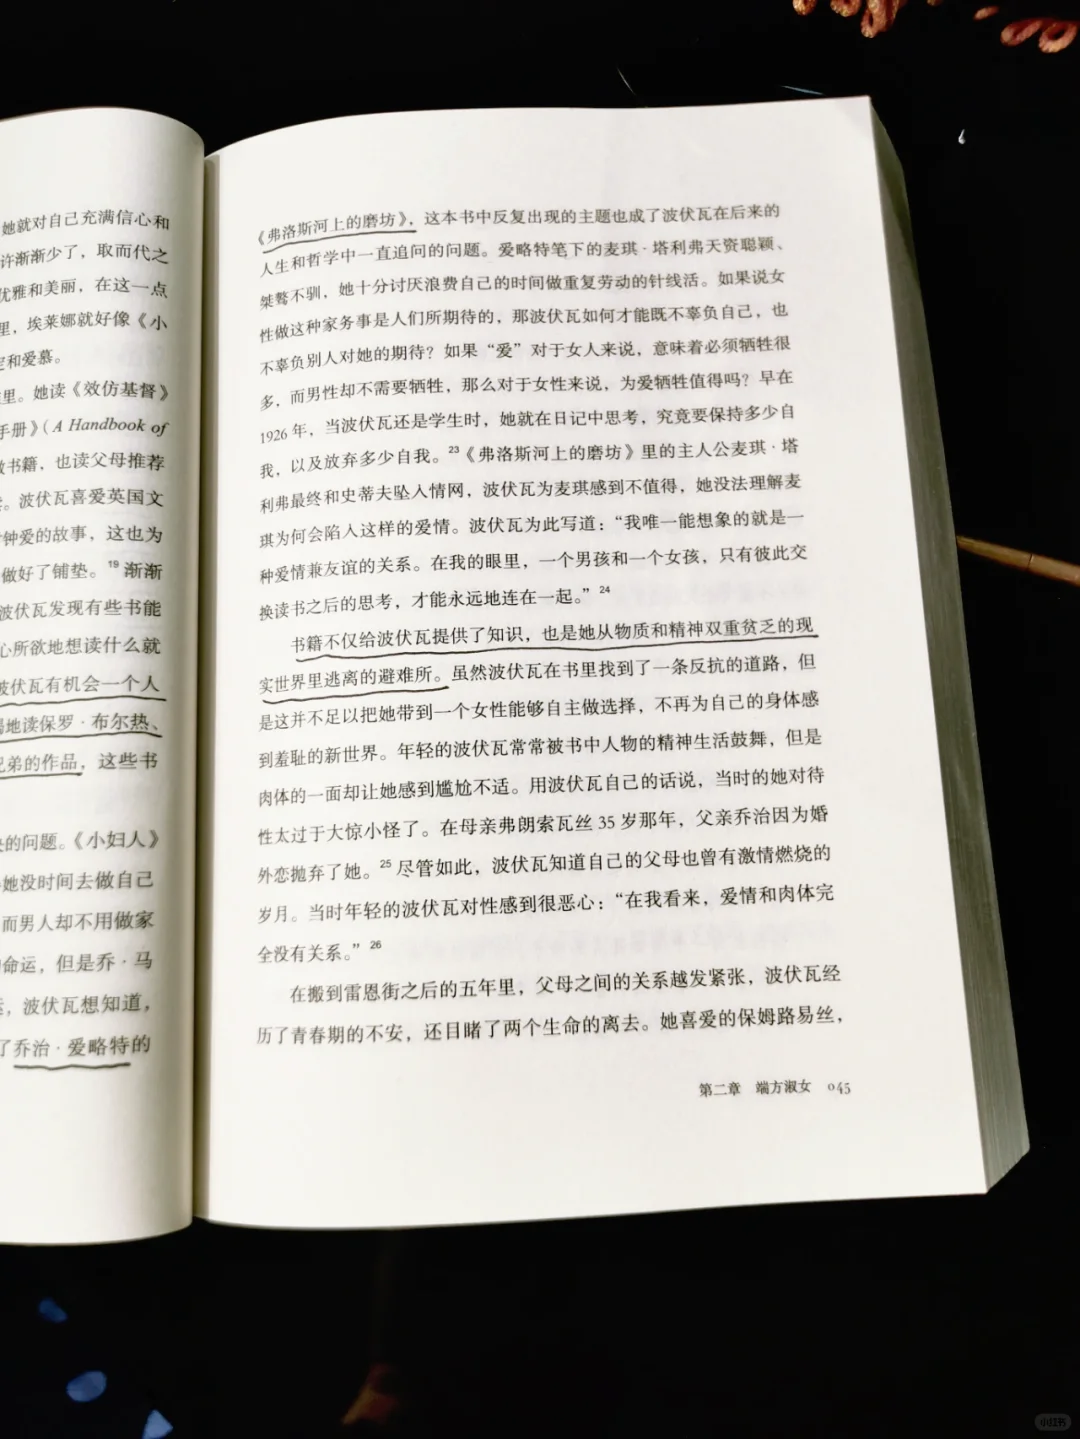 她就对自己充满信心和
许渐渐少了，取而代之
优雅和美丽，在这一点
里，埃莱娜就好像《小
和爱慕。
里。她读《效仿基督》
手册》（A Handbook of
书籍，也读父母推荐
。波伏瓦喜爱英国文
钟爱的故事，这也为
做好了铺垫。19 渐渐
波伏瓦发现有些书能
心所欲地想读什么就
波伏瓦有机会一个人
地读保罗·布尔热、
兄弟的作品，这些书
的问题。《小妇人》
她没时间去做自己
而男人却不用做家
命运，但是乔·马
，波伏瓦想知道，
了乔治·爱略特的
《弗洛斯河上的磨坊》，这本书中反复出现的主题也成了波伏瓦在后来的
人生和哲学中一直追问的问题。爱略特笔下的麦琪·塔利弗天资聪颖、
桀骜不驯，她十分讨厌浪费自己的时间做重复劳动的针线活。如果说女
性做这种家务事是人们所期待的，那波伏瓦如何才能既不辜负自己，也
不辜负别人对她的期待？如果“爱”对于女人来说，意味着必须牺牲很
多，而男性却不需要牺牲，那么对于女性来说，为爱牺牲值得吗？早在
1926 年，当波伏瓦还是学生时，她就在日记中思考，究竟要保持多少自
我，以及放弃多少自我。23《弗洛斯河上的磨坊》里的主人公麦琪·塔
利弗最终和史蒂夫坠入情网，波伏瓦为麦琪感到不值得，她没法理解麦
琪为何会陷入这样的爱情。波伏瓦为此写道：“我唯一能想象的就是一
种爱情兼友谊的关系。在我的眼里，一个男孩和一个女孩，只有彼此交
换读书之后的思考，才能永远地连在一起。”24
书籍不仅给波伏瓦提供了知识，也是她从物质和精神双重贫乏的现
实世界里逃离的避难所。虽然波伏瓦在书里找到了一条反抗的道路，但
是这并不足以把她带到一个女性能够自主做选择，不再为自己的身体感
到羞耻的新世界。年轻的波伏瓦常常被书中人物的精神生活鼓舞，但是
肉体的一面却让她感到尴尬不适。用波伏瓦自己的话说，当时的她对待
性太过于大惊小怪了。在母亲弗朗索瓦丝 35 岁那年，父亲乔治因为婚
外恋抛弃了她。25 尽管如此，波伏瓦知道自己的父母也曾有激情燃烧的
岁月。当时年轻的波伏瓦对性感到很恶心：“在我看来，爱情和肉体完
全没有关系。”26
在搬到雷恩街之后的五年里，父母之间的关系越发紧张，波伏瓦经
历了青春期的不安，还目睹了两个生命的离去。她喜爱的保姆路易丝，
第二章 端方淑女 045
小红书